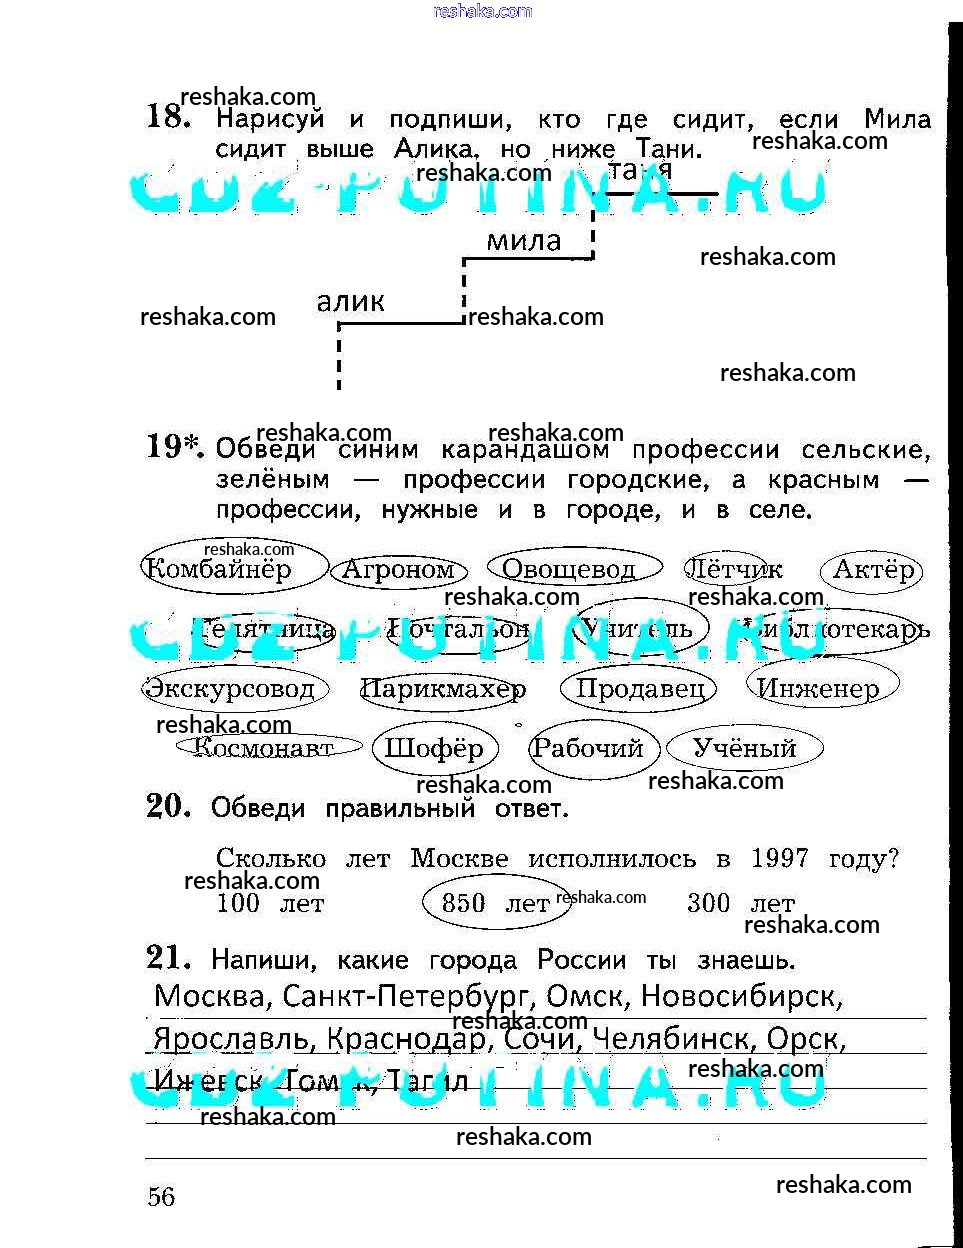 reshaka.com
reshaka.com
18. Нарисуй и подпиши, кто где сидит, если Мила
reshaka.com
сидит выше Алика, но ниже Тани.
reshaka.com
таня
GDZ-PUTINA.RU
мила
reshaka.com
алик
reshaka.com reshaka.com
reshaka.com
reshaka.com reshaka.com
19*. Обведи синим карандашом профессии сельские,
зелёным — профессии городские, а красным —
профессии, нужные и в городе, и в селе.
reshaka.com
Комбайнёр Агроном Овощевод Лётчик Актёр
reshaka.com reshaka.com
Телятница Почтальон Учитель Библиотекарь
GDZ-PUTINA.RU
Экскурсовод Парикмахер Продавец Инженер
reshaka.com
Космонавт Шофёр Рабочий Учёный
reshaka.com reshaka.com
20. Обведи правильный ответ.
Сколько лет Москве исполнилось в 1997 году?
reshaka.com
100 лет 850 лет reshaka.com 300 лет
reshaka.com
21. Напиши, какие города России ты знаешь.
Москва, Санкт-Петербург, Омск, Новосибирск,
reshaka.com
Ярославль, Краснодар, Сочи, Челябинск, Орск,
reshaka.com
Ижевск, Томск, Тагил
GDZ-PUTINA.RU
reshaka.com
reshaka.com
56
reshaka.com